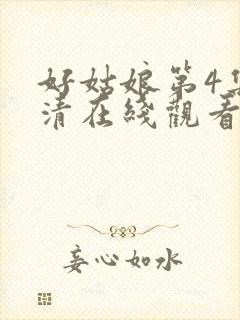 好姑娘第4集
清在綫觀看
妄心如水